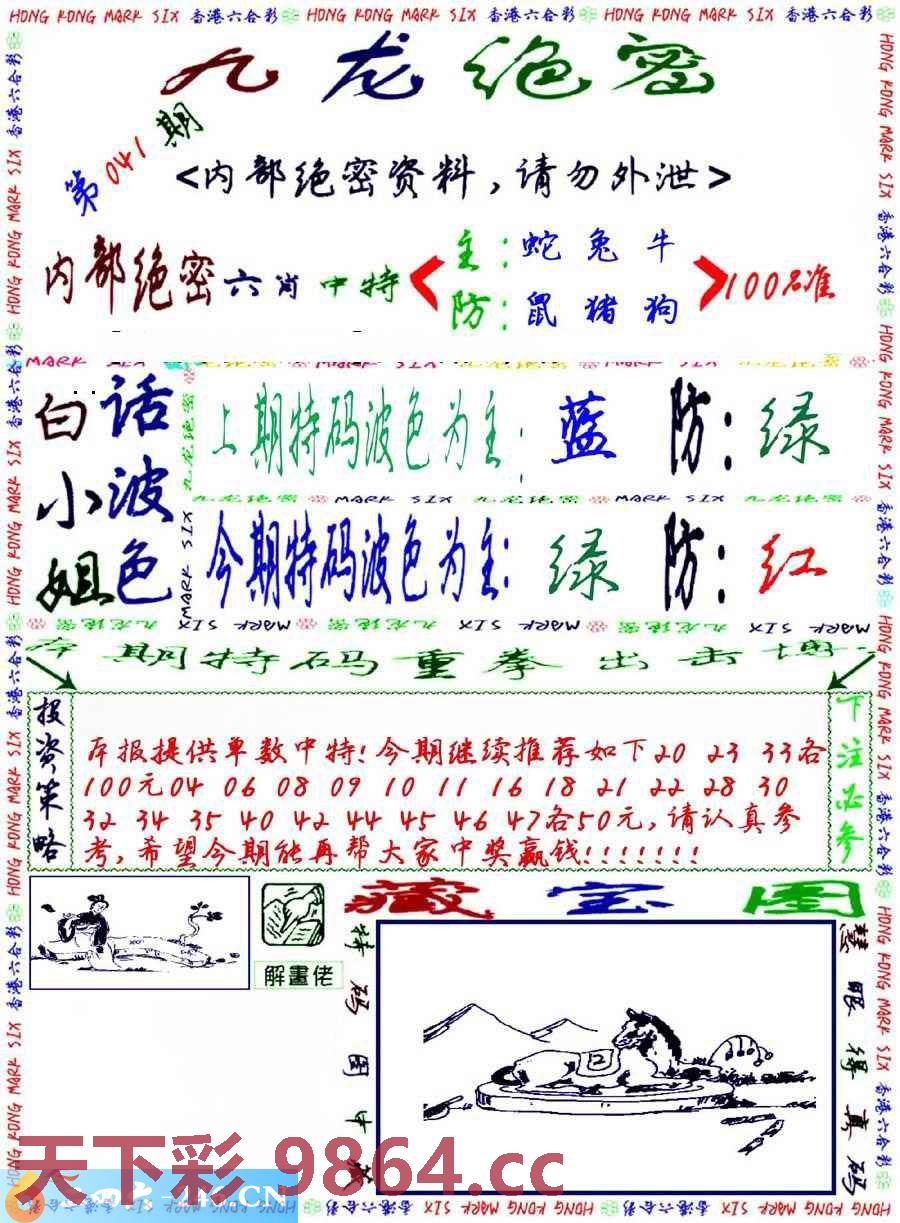 HONG KONG MARK SIX 香港六合彩 HONG KONG MARK SIX 香港六合彩 HONG KONG MARK SIX 香港六合彩 HONG KONG MARK SIX 香港六合彩
九龙绝密
第041期
<内部绝密资料,请勿外泄>
内部绝密六肖中特
主:蛇兔牛
防:鼠猪狗
100%准
白话
小波
姐色
上期特码波色为主:蓝 防:绿
九龙绝密 MARK SIX 九龙绝密 MARK SIX 九龙绝密
今期特码波色为主:绿 防:红
期特码重拳出击
投资策略
本报提供单数中特!今期继续推荐如下20 23 33各
100元04 06 08 09 10 11 16 18 21 22 28 30
32 34 35 40 42 44 45 46 47各50元,请认真参
考,希望今期能再帮大家中奖赢钱!!!!!!!
下注必参
解畫佬
藏宝图
特码图中
慧眼得真码
天下彩.9864.cc
-246.CN